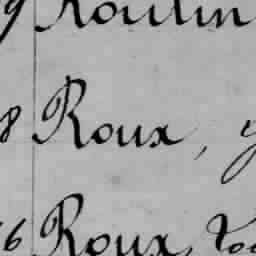 9 Roulin
8 Roux, y
6 Roux,